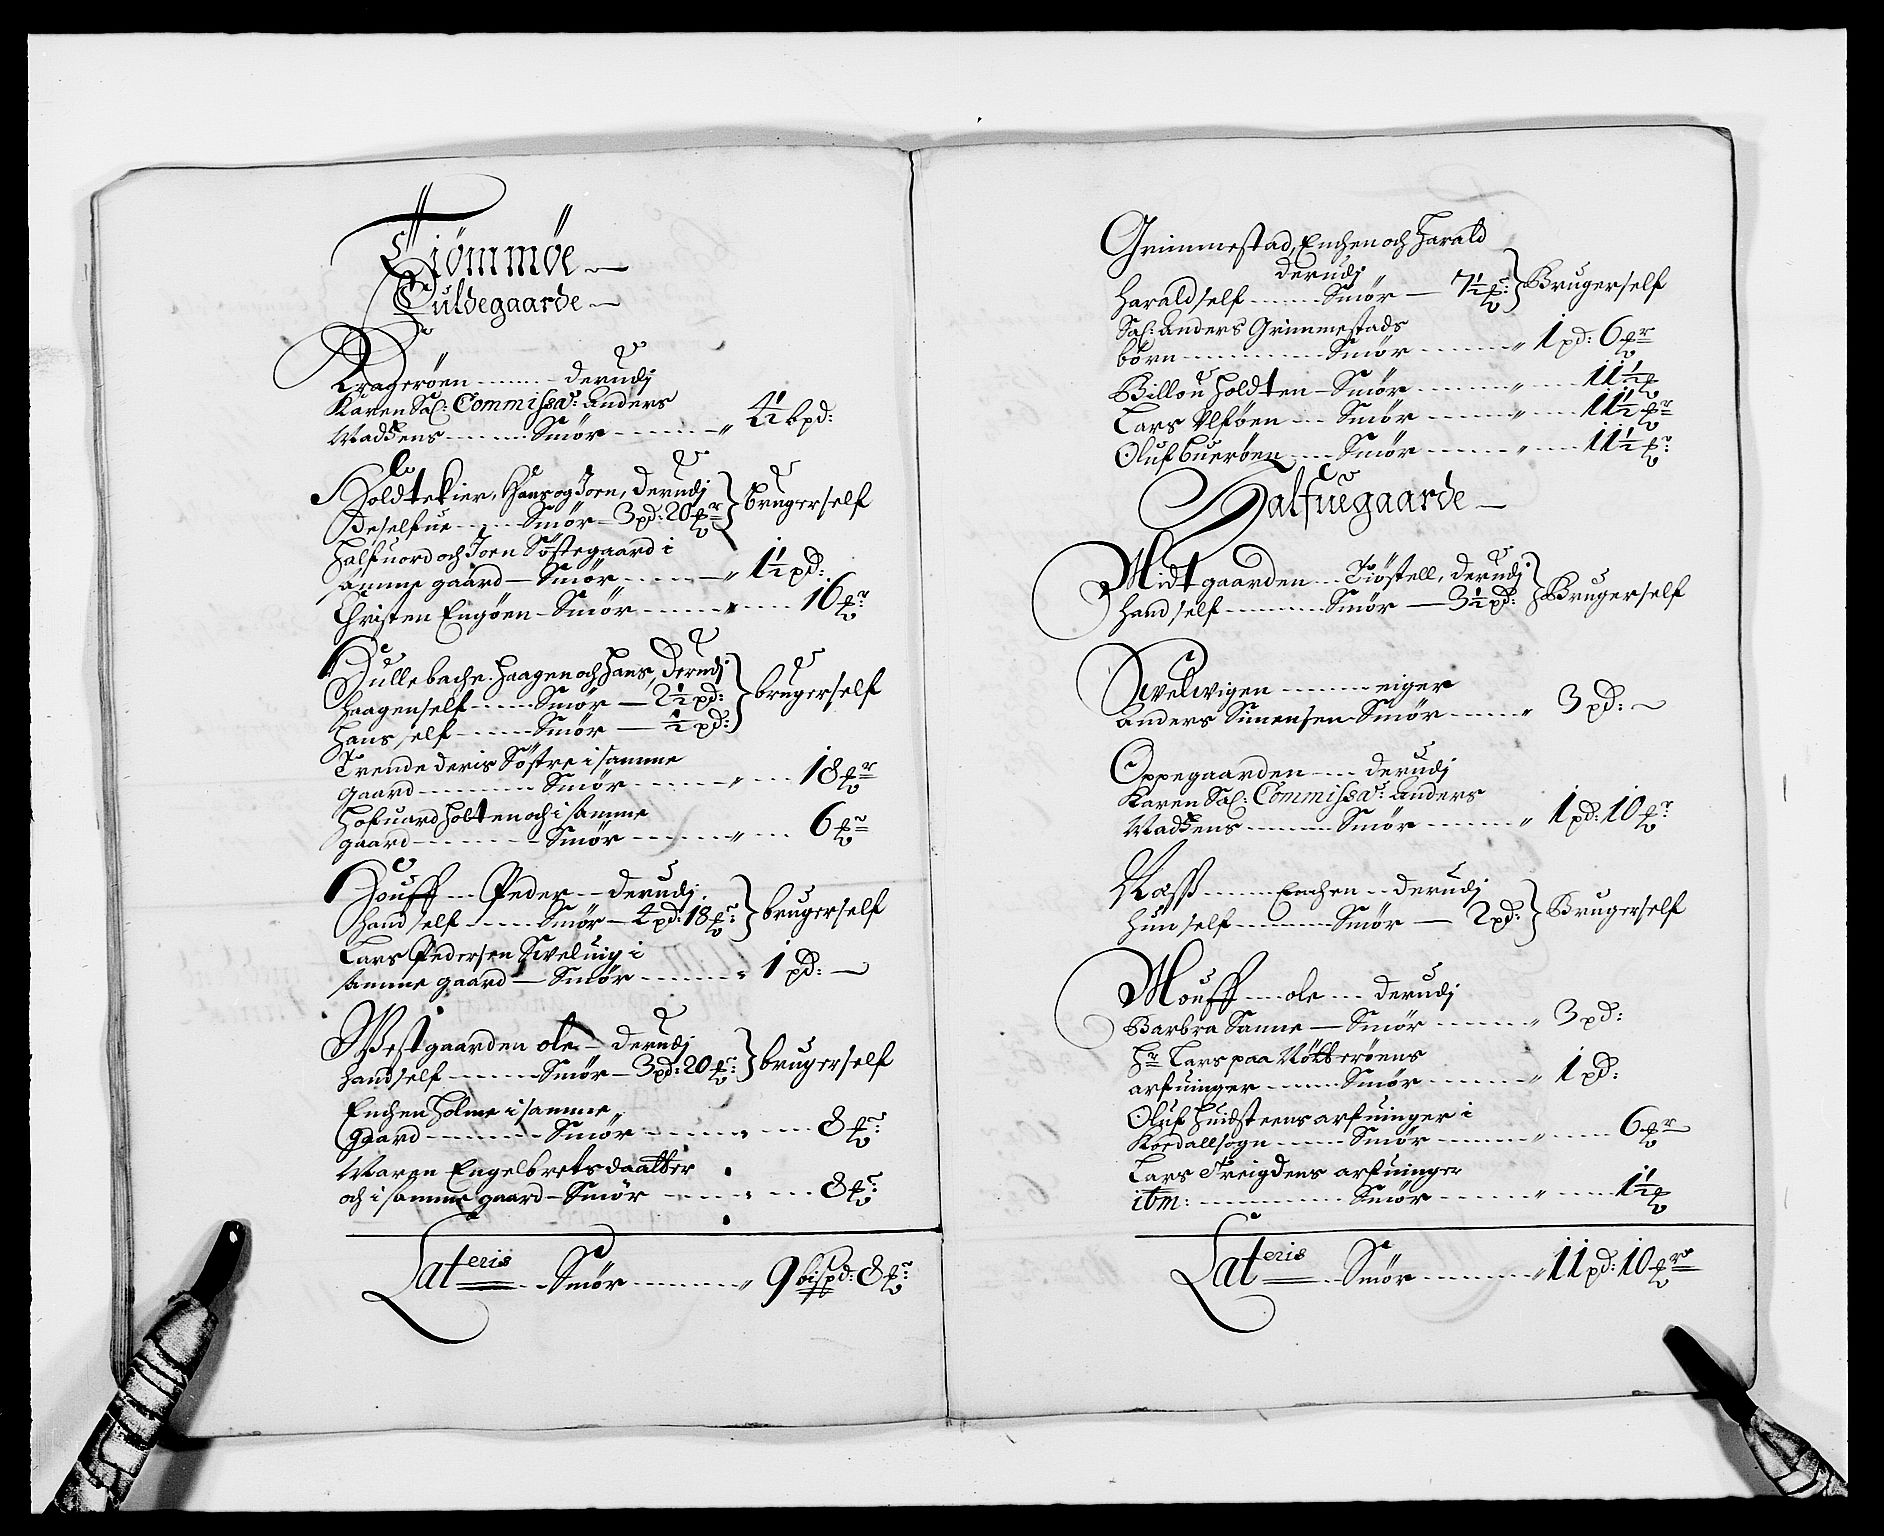 Tiømmøe
Fuldegaarde
Kragerøen derudj
Karen Sal: Commissa: Anders
Madsens Smør " 4½ bpd:
Holdtekier, Hans og Joen, derudj
Deselfue Smør 3 pd: 20 mr } brugerself
Halfuord och Joen Søstegaard i
samme gaard Smør " 1½ pd:
Christen Engøen Smør " 16 mr:
Hullebache. Haagen och Hans, derudj
Haagen self Smør 2½ pd: } brugerself
Hans self Smør ½ pd:
Trende deris Søstre i samme
gaard Smør " 18 mr
Hofuard Holten och i samme
gaard Smør " 6 mr
Houff Peder derudj
hand self Smør 4 pd: 18 mr: } brugerself
Lars Pedersen Sveluig i
samme gaard Smør " 1 pd:
Westgaarden ole derudj
hand self Smør 3 pd: 20 mr: } brugerself
Enchen Holme i samme
gaard Smør " 8 mr:
Maren Engelbretsdaatter
och i samme gaard Smør " 8 mr:
Lateris Smør " 9 bispd: 8 mr:
Grimmestad, Enchen och Harald
derudj
Harald self Smør 7½ mr: } Brugerself
Sal: Anders Grimmestads
børn Smør " 1 pd: 6 mr
Billou Holdten Smør " 11½ m
Lars Ulføen Smør " 11½ mr
Oluf buerøen Smør " 11½ mr:
Halfuegaarde
Midtgaarden Tiøstell, derudj
hand self Smør 3½ pd: } Brugerself
Svelwigen eiger
Anders Simensen Smør " 3 pd:
Oppegaarden derudj
Karen Sal: Commissa: Anders
Madsens Smør " 1 pd: 10 mr
Næss Enchen derudj
hun self Smør 2 pd: } Brugerself
Mouff ole derudj
Barbra Sanne Smør " 3 pd:
Hr Lars paa Nøtterøens
arfuinger Smør " 1 pd:
Oluf Huidsteens arfuinger i
Koedallsogn Smør " 6 mr
Lars Treigdens arfuinger
ibm: Smør " 1½ m
Lateris Smør " 11 pd: 10 mr